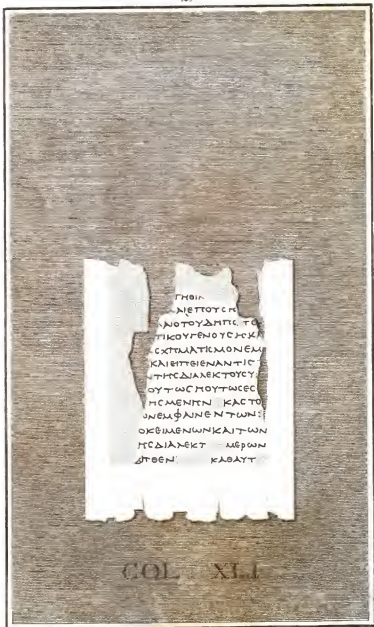 ΤΗΘΙΛ
ΑΙΕΠΟΥϹΗ
ΑΝΟΤΟΥΔΗΠϹ ΤΟ
ΤΙΚΟΥΓΕΝΟΥϹΗΚΑ
ϹΧΗΜΑΤΙϹΜΟΝΕΜ
ΚΑΙΕΙΠΕΙΕΝΑΝΤΙϹ
ΝΤΗϹΔΙΑΛΕΚΤΟΥϹΥ
ΟΥΤΩϹΗΟΥΤΩϹΕϹ
ΗϹΜΕΝΗΝ ΚΑϹΤΟ
ΟΝΕΜΦΑΙΝΕΝΤΩΝ
ΟΚΕΙΜΕΝΩΝΚΑΙΤΩΝ
ΗϹΔΙΑΛΕΚΤ ΜΕΡΩΝ
ΠΘΕΝ ΚΑΘΑΥΤ
COL XLI